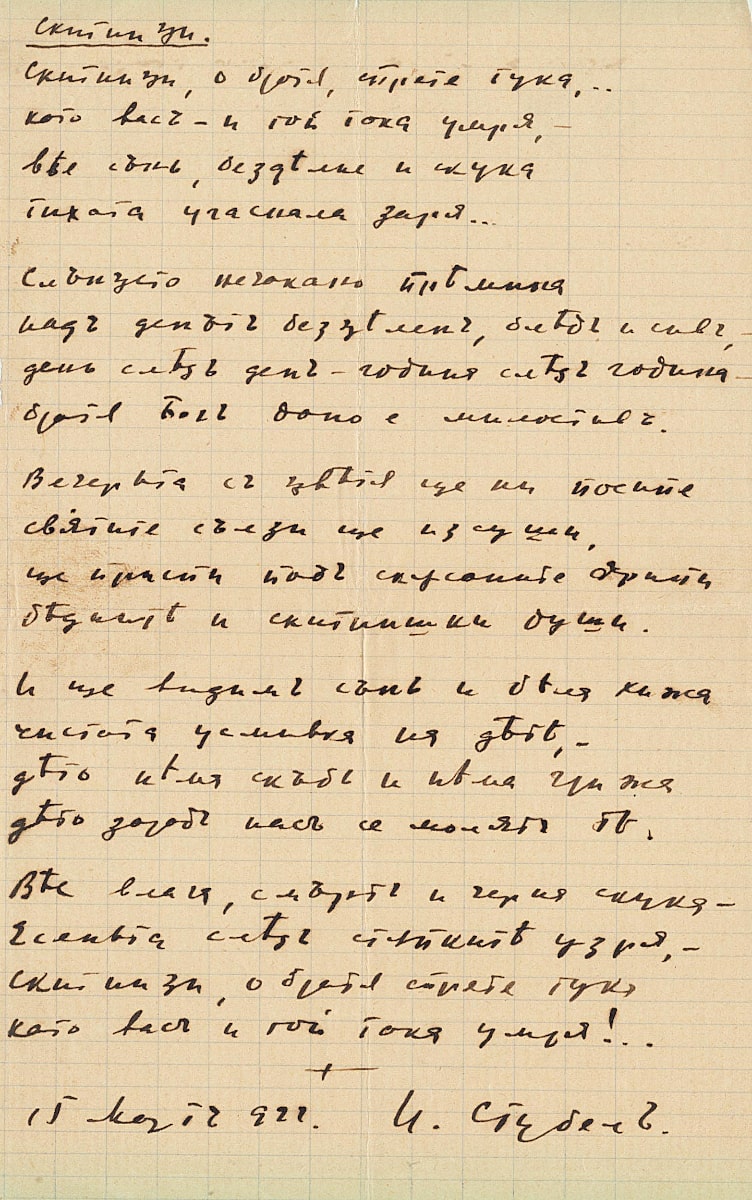 Скитници.
Скитници, о братя, спрете тука,..
като васъ – и той тока умря, –
вѣе сънь, бездѣлие и скука
тихата угаснала заря...
Слънцето нечакано прѣмина
надъ деньтъ безцѣленъ, блѣдъ и сивъ, –
день слѣдъ день – година слѣдъ година –
братя Богъ дано е милостивъ.
Вечерьта съ цвѣтя ще ни посипе
святите сълзи ще изсуши,
ще прости подъ скъсаните дрипи
бѣднитѣ и скитнишки души.
И ще видимъ сънь и бѣла хижа
чистата усмивка на дѣтѣ, –
дѣто нѣма скърбь и нѣма грижа
дѣто зарадъ насъ се молятъ тѣ.
Вѣе влага, смъртъ и черна скука –
Есеньта слѣдъ стъпкитѣ узря, –
Скитници, о братя спрете тука
като васъ и той тока умря!..
+
15 Мартъ 922. И. Стубелъ.